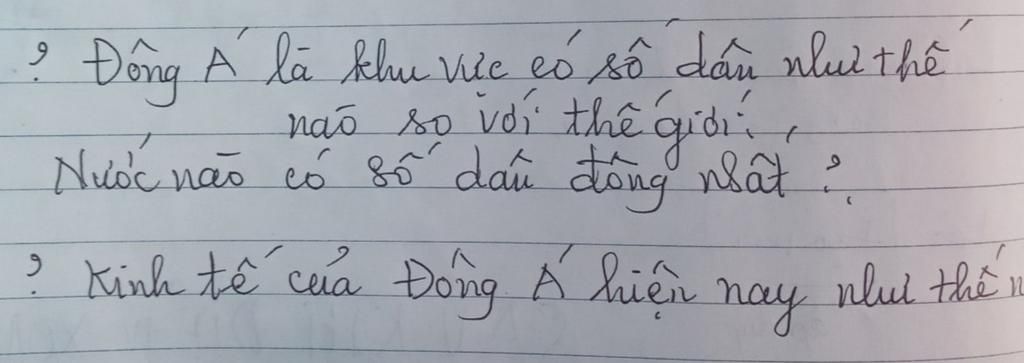 ? Đông Á là khu vực có số dân như thế
nào so với thế giới.
Nước nào có số dân đông nhất ?
? Kinh tế của Đông Á hiện nay như thế n